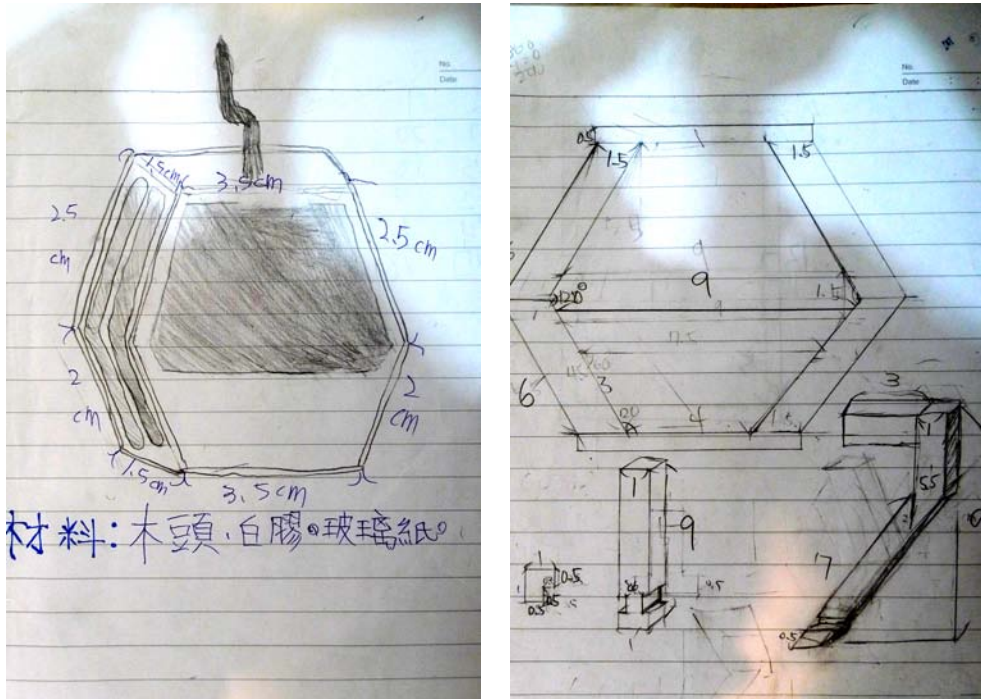 No.
Date
1.5cm
3.5cm
2.5
cm
2.5cm
2
cm
2
cm
1.5cm
3.5cm
材料:木頭.白膠。玻璃紙。
No.
Date
0.5
1.5
1.5
9
120°
1.5
7.5
6
3
4
3
1
1
5.5
9
7
0.5
0.5
0.5
1